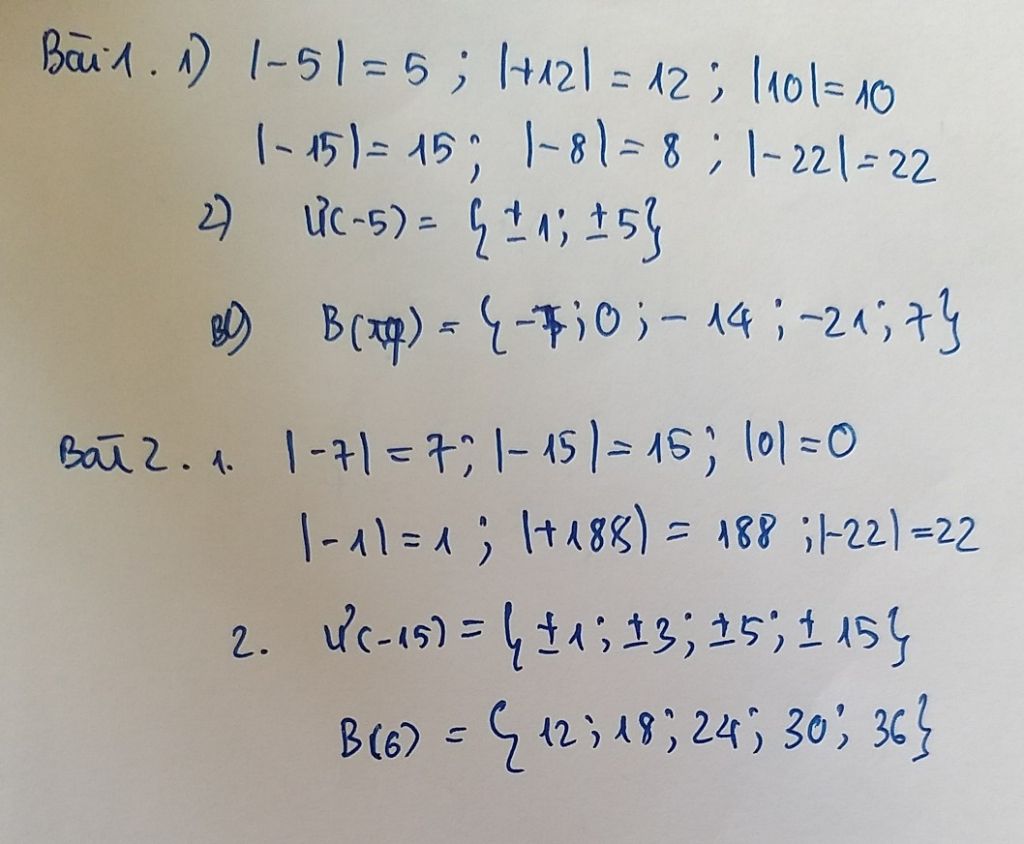 Bài 1. 1) |-5| = 5 ; |+12| = 12 ; |10| = 10
|-15| = 15 ; |-8| = 8 ; |-22| = 22
2) Ư(-5) = { ±1; ±5}
B( ) = { ; 0 ; -14 ; -21 ; 7}
Bài 2. 1. |-7| = 7; |-15| = 15; |0| = 0
|-1| = 1 ; |+188| = 188 ; |-22| = 22
2. Ư(-15) = { ±1 ; ±3; ±5; ±15}
B(6) = { 12 ; 18 ; 24 ; 30 ; 36}